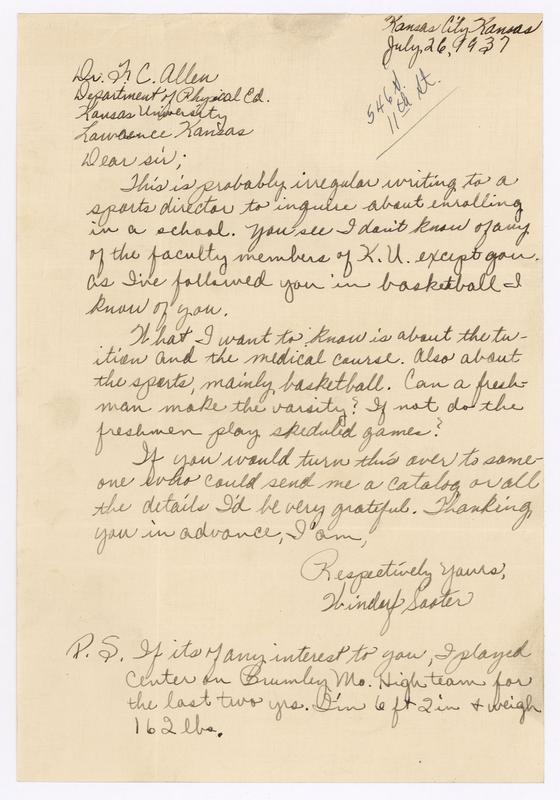 Kansas City Kansas
July 26, 1937
546 N.
11th St.
Dr. F. C. Allen
Department of Physical Ed.
Kansas University
Lawrence Kansas
Dear sir;
This is probably irregular writing to a
sports director to inquire about enrolling
in a school. You see I don't know of any
of the faculty members of K. U. except you.
As I've followed you in basketball I
know of you.
What I want to know is about the tu-
ition and the medical course. Also about
the sports, mainly basketball. Can a fresh-
man make the varsity? If not do the
freshmen play skeduled games?
If you would turn this over to some-
one who could send me a catalog or all
the details I'd be very grateful. Thanking
you in advance, I am,
Respectively yours,
Windorf Sooter
P. S. If its of any interest to you, I played
center on Brumley Mo. High team for
the last two yrs. I'm 6 ft 2 in & weigh
162 lbs.